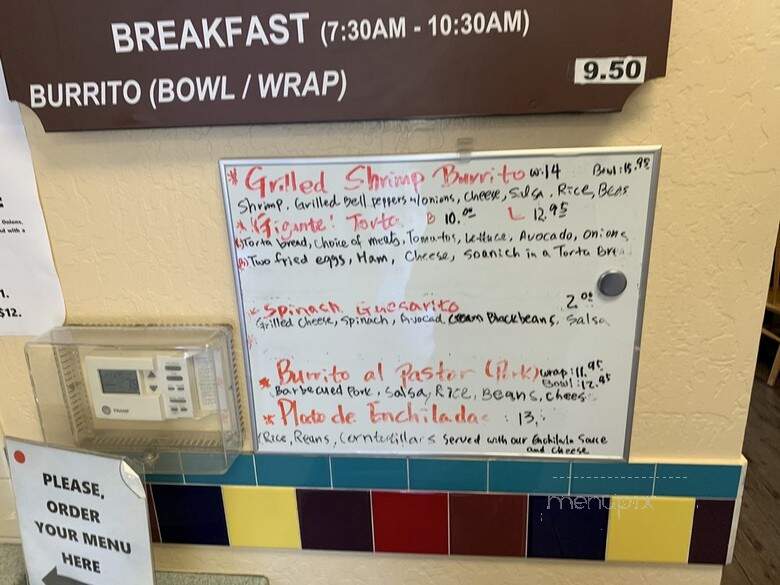 BREAKFAST (7:30AM - 10:30AM)
BURRITO (BOWL / WRAP) 9.50
* Grilled Shrimp Burrito w:14 Bowl:15.95
Shrimp, Grilled Bell peppers w/onions, cheese, Salsa, Rice, Beans
* ¡Gigante! Torta B 10.00 L 12.95
Torta bread, choice of meats, Tomatos, Lettuce, Avocado, onions
(B) Two fried eggs, Ham, Cheese, Spanich in a Torta Bread
* Spinach Quesarito 2.00
Grilled Cheese, Spinach, Avocad, cream Blackbeans, Salsa
* Burrito al Pastor (Pork) wrap:11.95
Bowl:12.95
Barbecued Pork, Salsa, Rice, Beans, chees
* Plato de Enchiladas : 13.
(Rice, Beans, Corntortillars served with our Enchilada Sauce
and cheese
Onions,
and with a
1.
$12.
TRANE
PLEASE,
ORDER
YOUR MENU
HERE
menupix